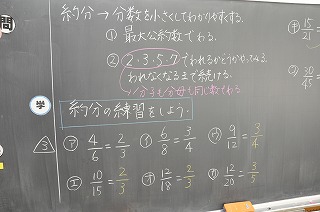 問
約分→分数を小さくしてわかりやすくする。
① 最大公約数でわる。
② 2・3・5・7でわれるかどうかやってみる。
われなくなるまで続ける。
分子も分母も同じ数でわる
学
約分の練習をしよう。
3
㋐ 4/6 = 2/3 ㋑ 6/8 = 3/4 ㋒ 9/12 = 3/4
㋓ 10/15 = 2/3 ㋔ 12/18 = 2/3 ㋕ 12/20 = 3/5
㋖ 15/21
30/45